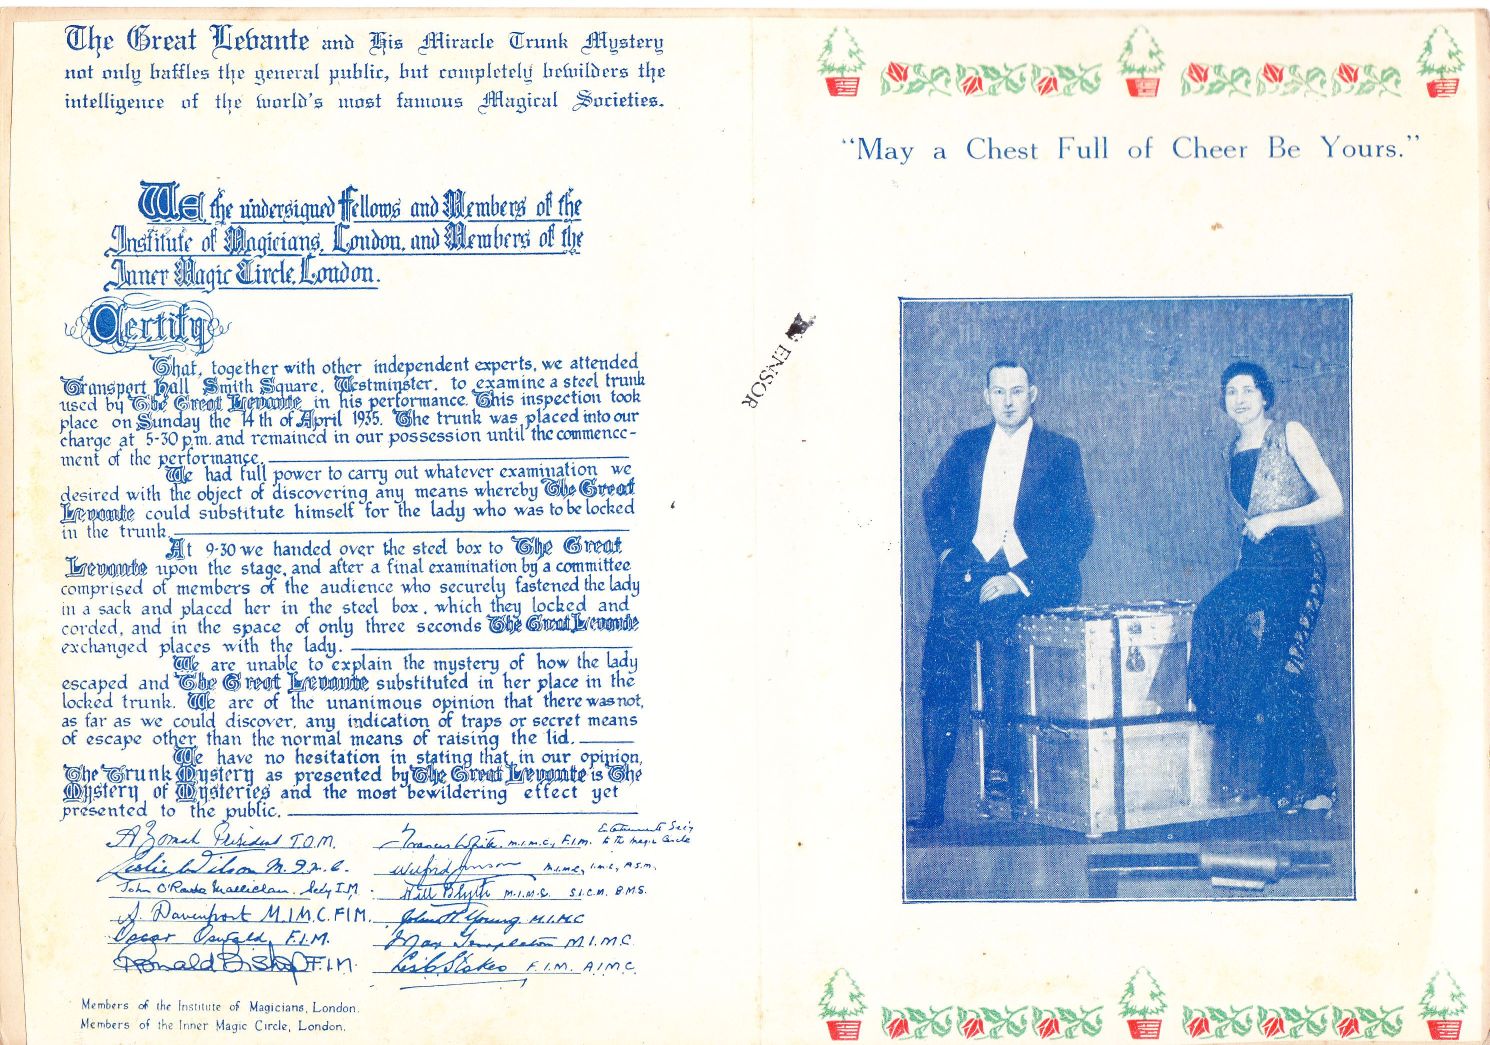 The Great Levante and His Miracle Trunk Mystery
not only baffles the general public, but completely bewilders the
intelligence of the world's most famous Magical Societies.
WE, the undersigned Fellows and Members of the
Institute of Magicians, London, and Members of the
Inner Magic Circle, London.
Certify
That, together with other independent experts, we attended
Transport Hall Smith Square, Westminster, to examine a steel trunk
used by The Great Levante in his performance. This inspection took
place on Sunday the 14th of April 1935. The trunk was placed into our
charge at 5-30 p.m. and remained in our possession until the commence-
ment of the performance.
We had full power to carry out whatever examination we
desired with the object of discovering any means whereby The Great
Levante could substitute himself for the lady who was to be locked
in the trunk.
At 9-30 we handed over the steel box to The Great
Levante upon the stage, and after a final examination by a committee
comprised of members of the audience who securely fastened the lady
in a sack and placed her in the steel box, which they locked and
corded, and in the space of only three seconds The Great Levante
exchanged places with the lady.
We are unable to explain the mystery of how the lady
escaped and The Great Levante substituted in her place in the
locked trunk. We are of the unanimous opinion that there was not,
as far as we could discover, any indication of traps or secret means
of escape other than the normal means of raising the lid.
We have no hesitation in stating that in our opinion,
The Trunk Mystery as presented by The Great Levante is The
Mystery of Mysteries and the most bewildering effect yet
presented to the public.
A Zomah President I.O.M.
Leslie Wilson M.I.M.C.
John O'Rawe
S. Davenport M.I.M.C. F.I.M.
Oscar Oswald, F.I.M.
Ronald Bishop F.I.M.
Francis White. M.I.M.C., F.I.M. to the Magic Circle
Wilfred Jonson M.I.M.C., I.M.C., A.S.M.
Will Blyth M.I.M.C. S.I.C.M. B.M.S.
John H. Young. M.I.M.C
Max Templeton M.I.M.C.
Stokes F.I.M. A.I.M.C.
Members of the Institute of Magicians, London.
Members of the Inner Magic Circle, London.
ENSOR
"May a Chest Full of Cheer Be Yours."